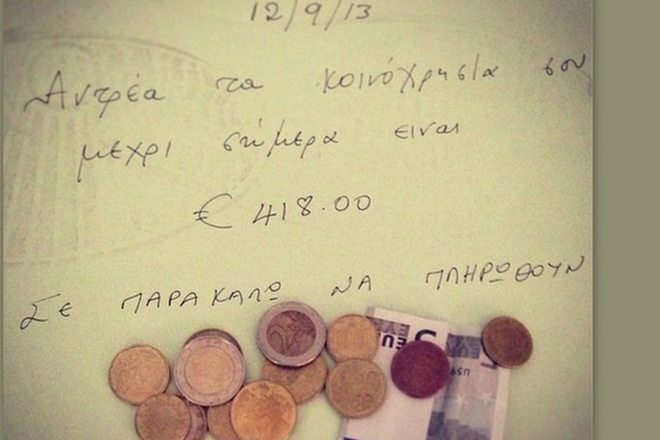 12/9/13
Αντρέα τα κοινόχρηστα σου
μεχρι σήμερα ειναι
€ 418.00
Σε ΠΑΡΑΚΑΛΩ ΝΑ ΠΛΗΡΩΘΟΥΝ
2
5
EU
U59